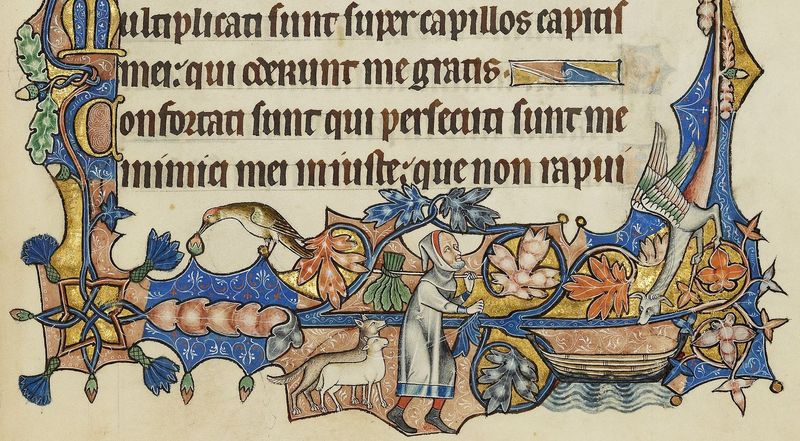 Multiplicati sunt super capillos capitis
mei: qui oderunt me gratis.
Confortati sunt qui persecuti sunt me
inimici mei iniuste: que non rapui